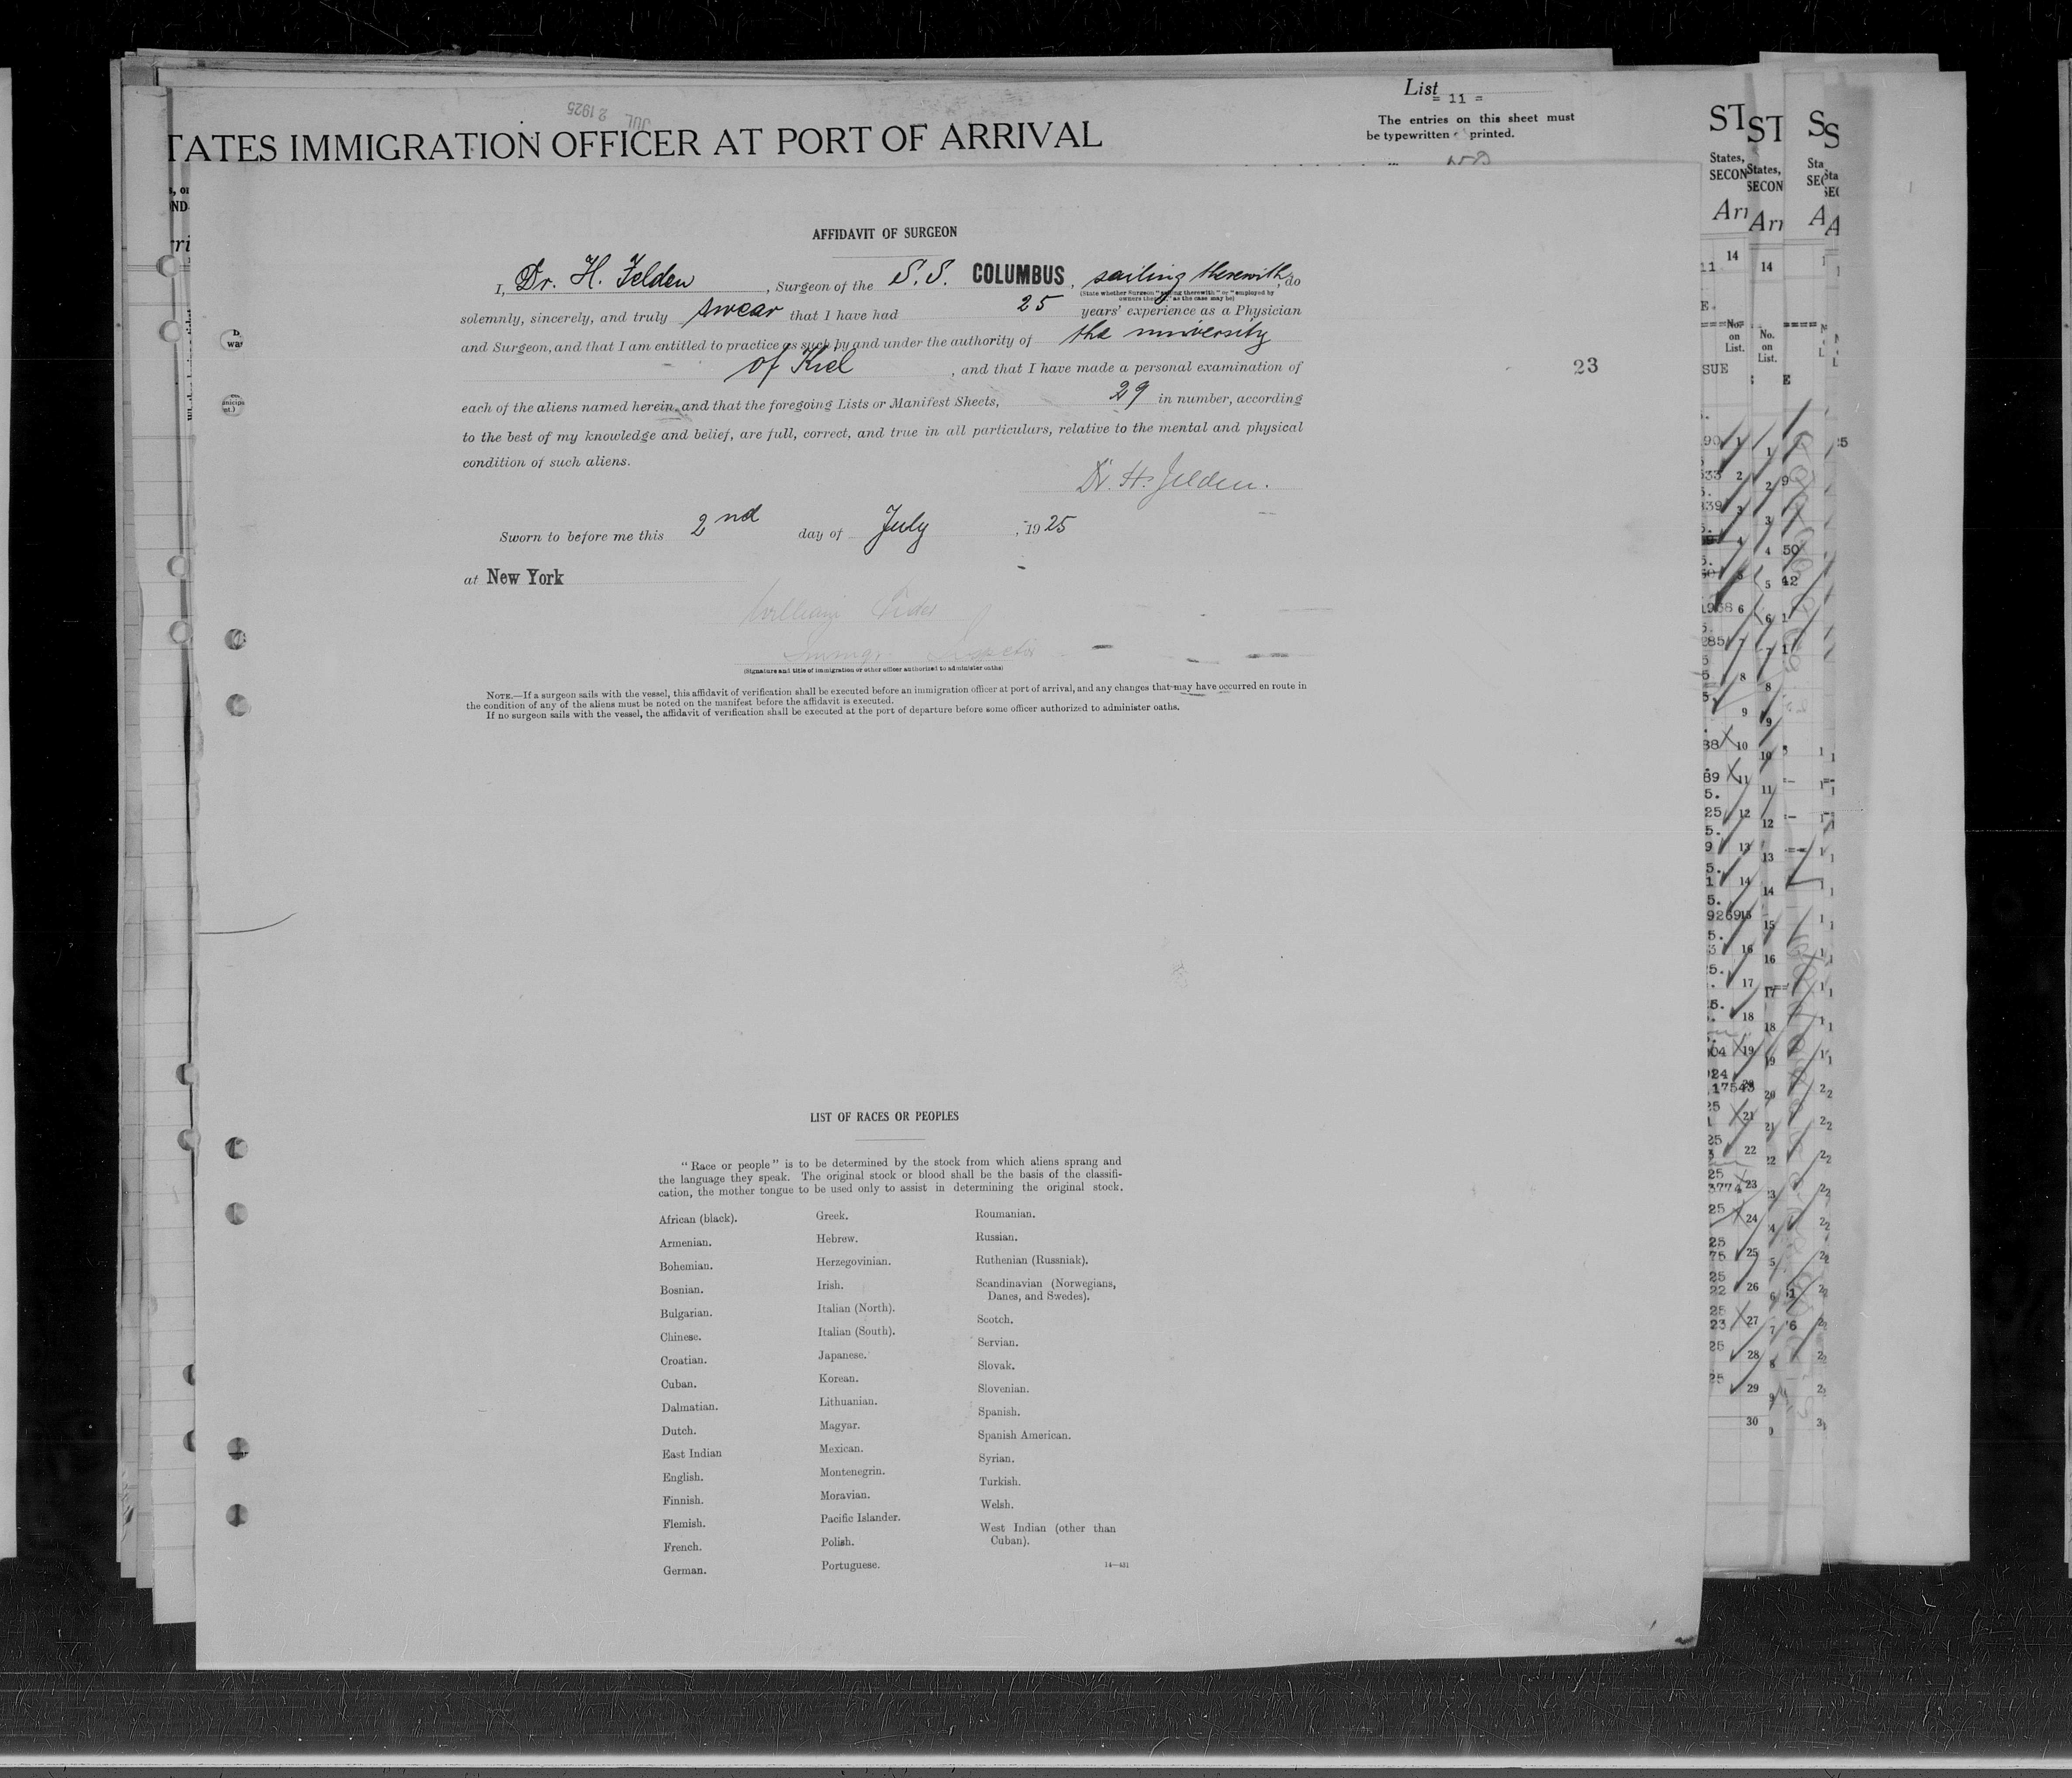 JUL 2 1925
List
= 11 =
The entries on this sheet must
be typewritten or printed.
TATES IMMIGRATION OFFICER AT PORT OF ARRIVAL
AFFIDAVIT OF SURGEON
I, Dr. H. Jelden, Surgeon of the S.S. COLUMBUS, sailing therewith, do
(State whether Surgeon "sailing therewith" or "employed by
owners thereof," as the case may be)
solemnly, sincerely, and truly swear that I have had 25 years' experience as a Physician
and Surgeon, and that I am entitled to practice as such by and under the authority of the university
of Kiel, and that I have made a personal examination of
23
each of the aliens named herein, and that the foregoing Lists or Manifest Sheets, 29 in number, according
to the best of my knowledge and belief, are full, correct, and true in all particulars, relative to the mental and physical
condition of such aliens.
Dr. H. Jelden.
Sworn to before me this 2nd day of July, 1925
at New York
William
(Signature and title of immigration or other officer authorized to administer oaths)
NOTE.—If a surgeon sails with the vessel, this affidavit of verification shall be executed before an immigration officer at port of arrival, and any changes that may have occurred en route in
the condition of any of the aliens must be noted on the manifest before the affidavit is executed.
If no surgeon sails with the vessel, the affidavit of verification shall be executed at the port of departure before some officer authorized to administer oaths.
LIST OF RACES OR PEOPLES
"Race or people" is to be determined by the stock from which aliens sprang and
the language they speak. The original stock or blood shall be the basis of the classifi-
cation, the mother tongue to be used only to assist in determining the original stock.
African (black).
Armenian.
Bohemian.
Bosnian.
Bulgarian.
Chinese.
Croatian.
Cuban.
Dalmatian.
Dutch.
East Indian
English.
Finnish.
Flemish.
French.
German.
Greek.
Hebrew.
Herzegovinian.
Irish.
Italian (North).
Italian (South).
Japanese.
Korean.
Lithuanian.
Magyar.
Mexican.
Montenegrin.
Moravian.
Pacific Islander.
Polish.
Portuguese.
Roumanian.
Russian.
Ruthenian (Russniak).
Scandinavian (Norwegians,
Danes, and Swedes).
Scotch.
Servian.
Slovak.
Slovenian.
Spanish.
Spanish American.
Syrian.
Turkish.
Welsh.
West Indian (other than
Cuban).
14—431